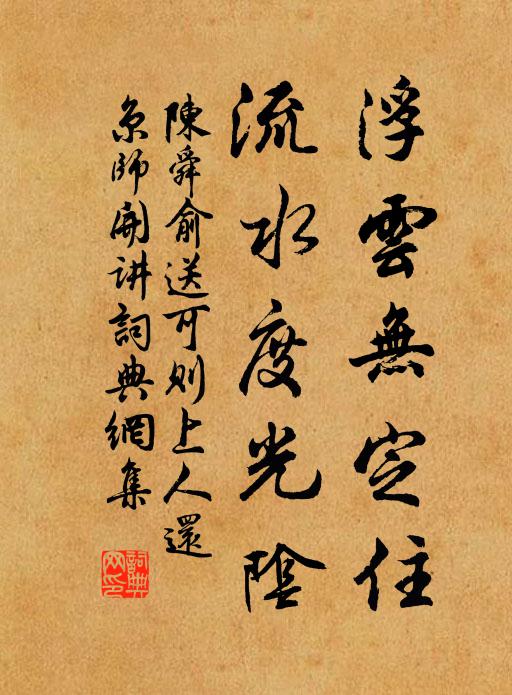 浮雲無定住
流水度光陰
陳舜俞送可則上人還
京師開講詞典網集
詞典網印